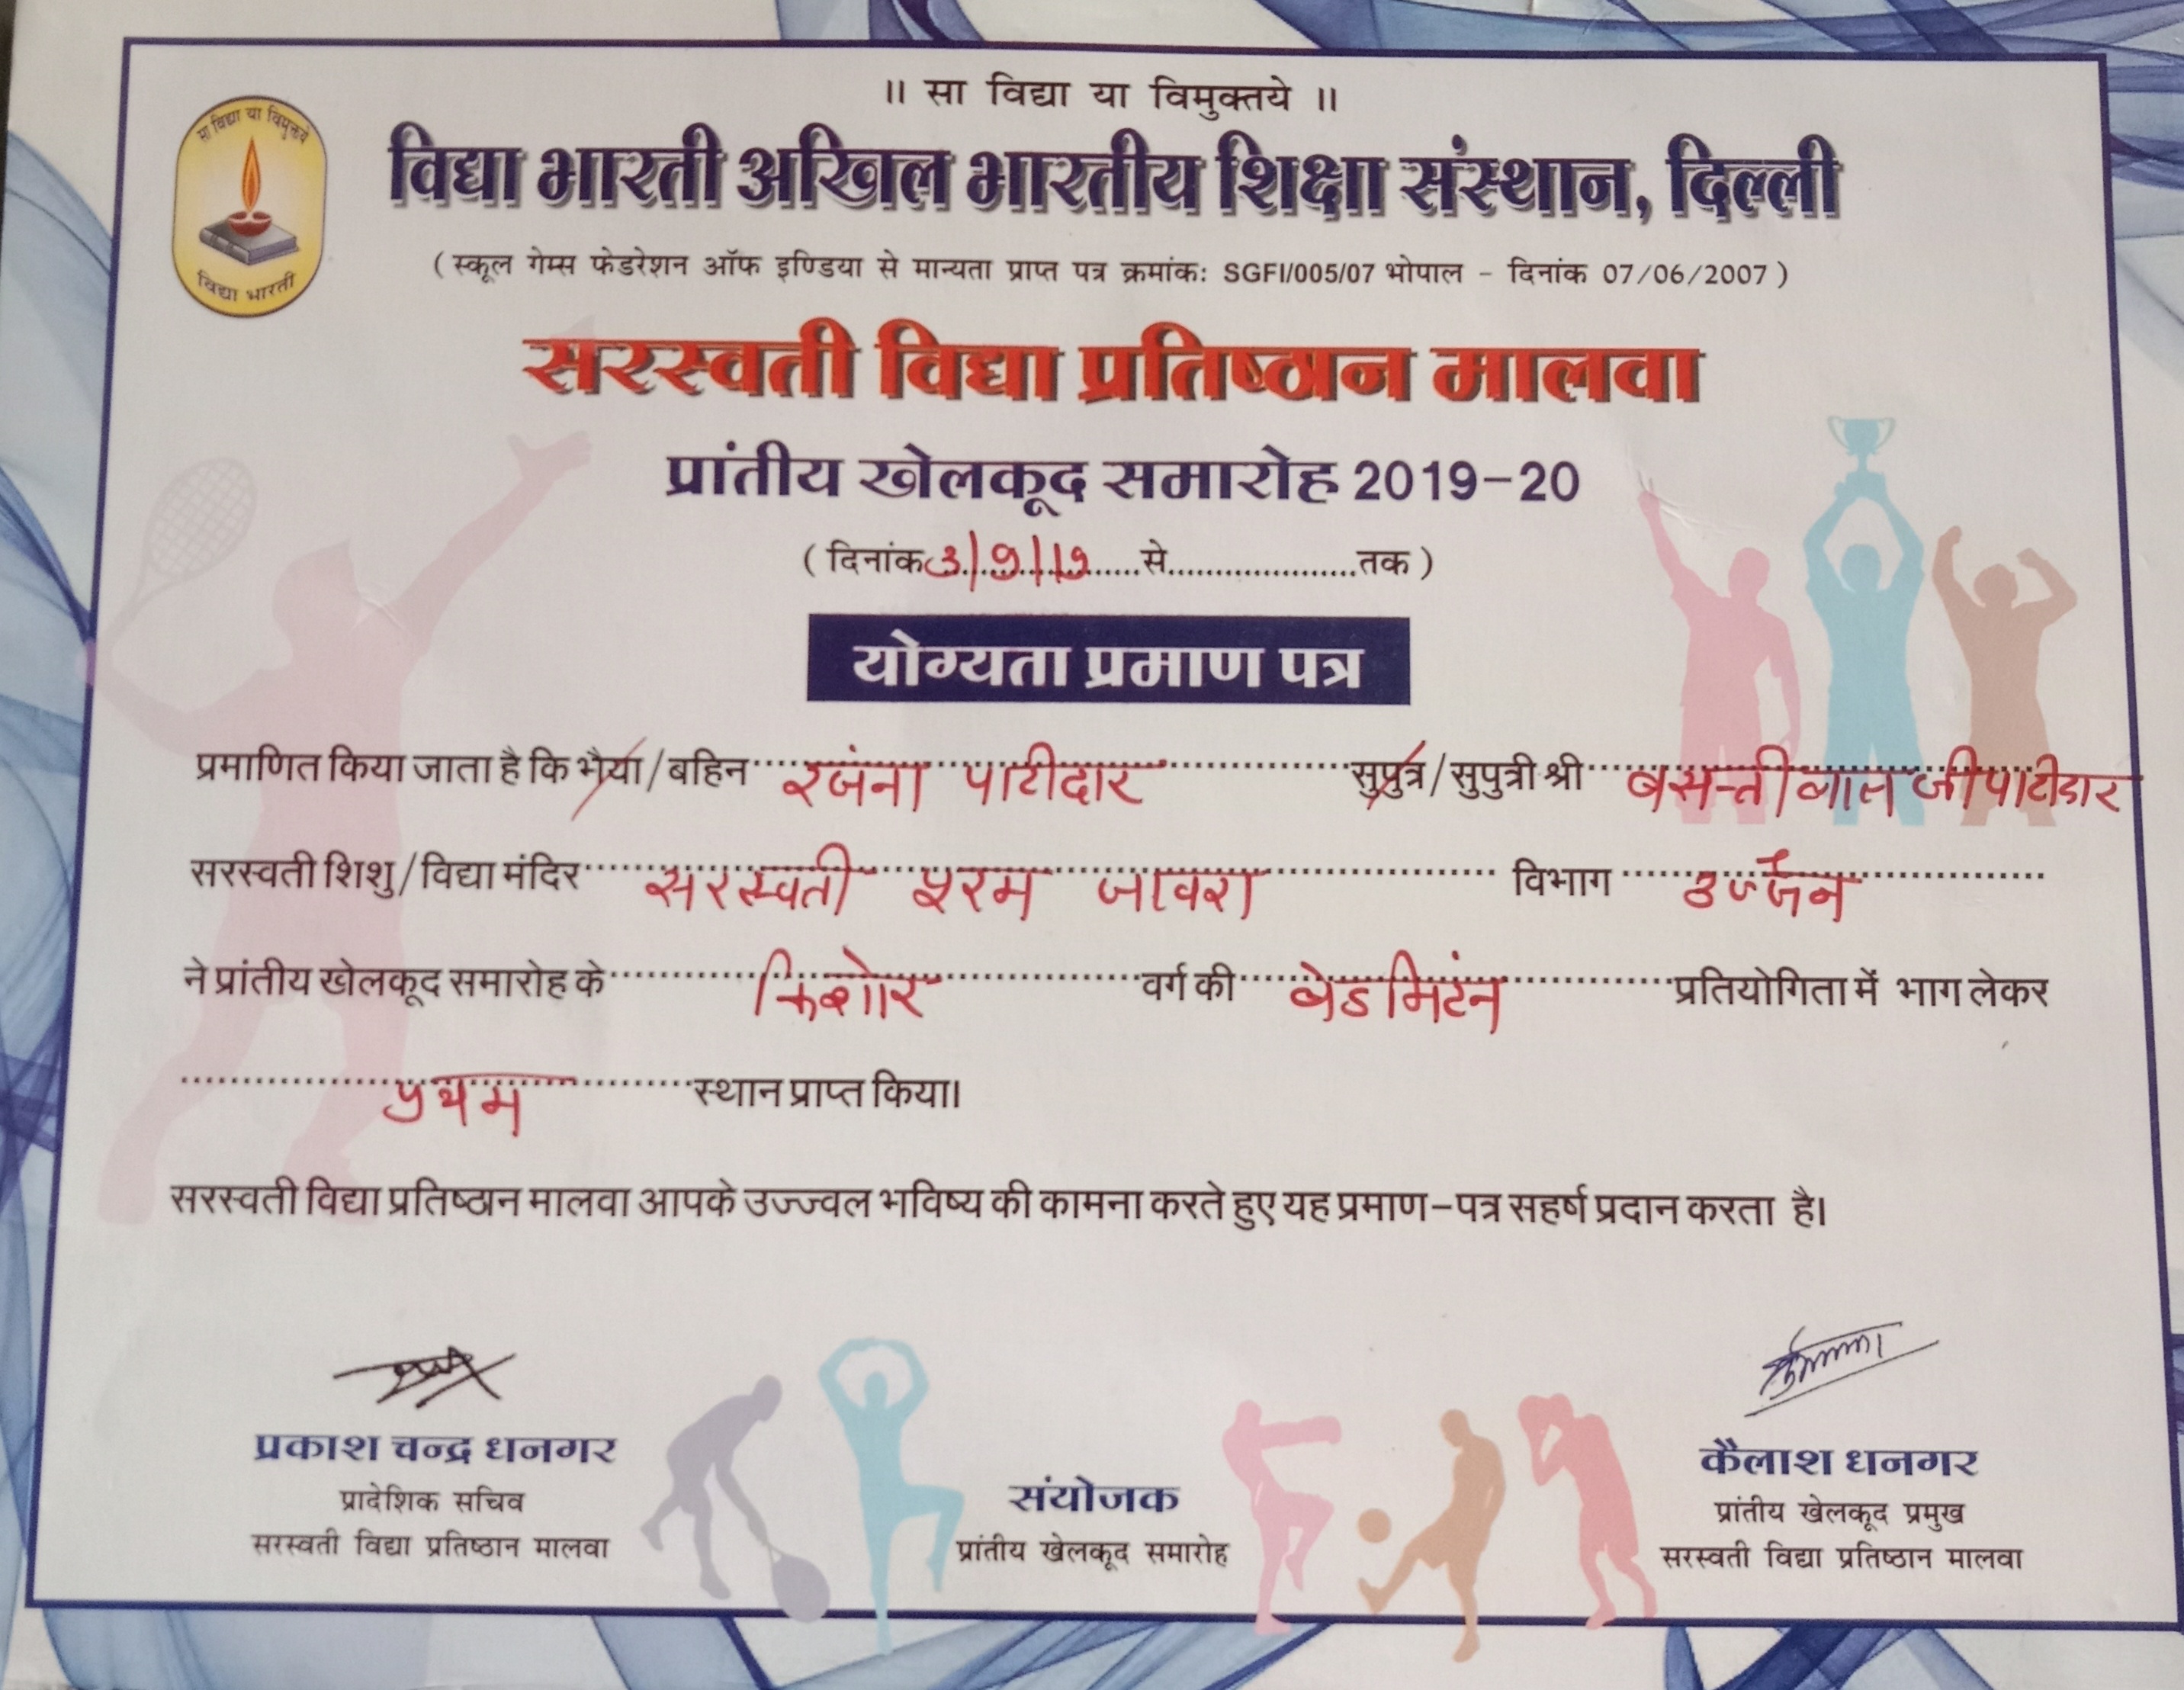 ॥ सा विद्या या विमुक्तये ॥
सा विद्या या विमुक्तये
विद्या भारती
विद्या भारती अखिल भारतीय शिक्षा संस्थान, दिल्ली
( स्कूल गेम्स फेडरेशन ऑफ इण्डिया से मान्यता प्राप्त पत्र क्रमांक: SGFI/005/07 भोपाल - दिनांक 07/06/2007 )
सरस्वती विद्या प्रतिष्ठान मालवा
प्रांतीय खेलकूद समारोह 2019-20
( दिनांक 3/9/19 से....................तक )
योग्यता प्रमाण पत्र
प्रमाणित किया जाता है कि भैया/बहिन रंजना पाटीदार सुपुत्र/सुपुत्री श्री बसन्तीलाल जी पाटीदार
सरस्वती शिशु/विद्या मंदिर सरस्वती जावरा विभाग उज्जैन
ने प्रांतीय खेलकूद समारोह के किशोर वर्ग की बेडमिटंन प्रतियोगिता में भाग लेकर
प्रथम स्थान प्राप्त किया।
सरस्वती विद्या प्रतिष्ठान मालवा आपके उज्ज्वल भविष्य की कामना करते हुए यह प्रमाण-पत्र सहर्ष प्रदान करता है।
प्रकाश चन्द्र धनगर
प्रादेशिक सचिव
सरस्वती विद्या प्रतिष्ठान मालवा
संयोजक
प्रांतीय खेलकूद समारोह
कैलाश धनगर
प्रांतीय खेलकूद प्रमुख
सरस्वती विद्या प्रतिष्ठान मालवा